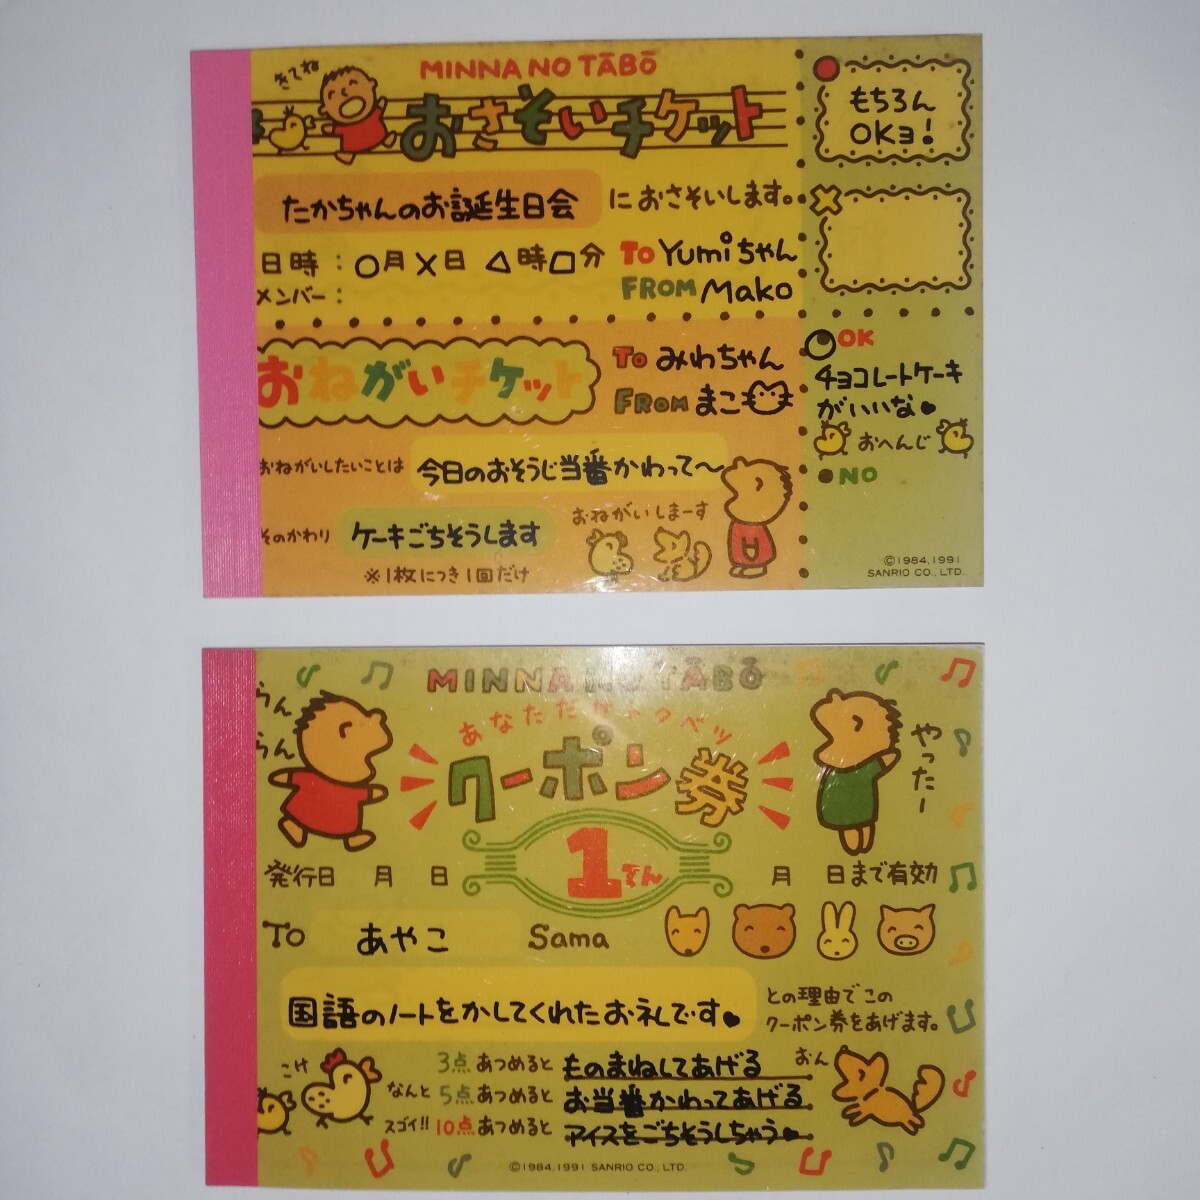 MINNA NO TĀBŌ
きてね
おさそいチケット
たかちゃんのお誕生日会 におさそいします。
日時：○月×日 △時□分
メンバー：
TO Yumiちゃん
FROM Mako
もちろん
OKョ!
おねがいチケット
TO みわちゃん
FROM まこ
おねがいしたいことは 今日のおそうじ当番かわって〜
そのかわり ケーキごちそうします
※1枚につき1回だけ
おねがいしまーす
OK
チョコレートケーキ
がいいな♥
おへんじ
NO
©1984,1991
SANRIO CO., LTD.
MINNA NO TĀBŌ
らん
らん
あなただけトクベツ
クーポン券
やったー
1てん
発行日 月 日
月 日まで有効
TO あやこ Sama
国語のノートをかしてくれたお礼です♥
との理由でこの
クーポン券をあげます。
こけ
3点あつめると ものまねしてあげる
なんと 5点あつめると お当番かわってあげる
スゴイ!! 10点あつめると アイスをごちそうしちゃう♥
おん
©1984,1991 SANRIO CO., LTD.